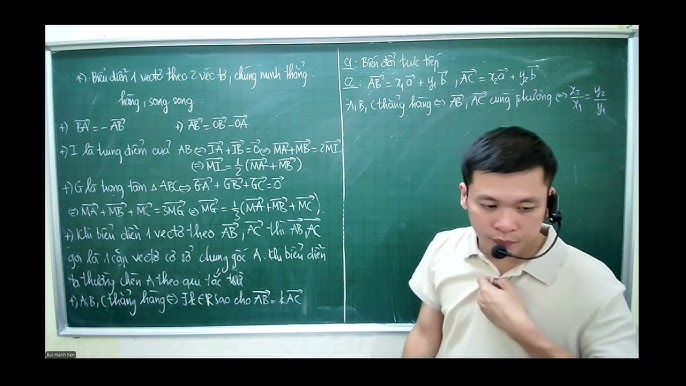 *) Biểu diễn 1 vectơ theo 2 véc tơ, chứng minh thẳng
hàng, song song.
+) $\overrightarrow{BA} = -\overrightarrow{AB}$ +) $\overrightarrow{AB} = \overrightarrow{OB} - \overrightarrow{OA}$
+) I là trung điểm của AB ⇔ $\overrightarrow{IA} + \overrightarrow{IB} = \overrightarrow{0}$ ⇔ $\overrightarrow{MA} + \overrightarrow{MB} = 2\overrightarrow{MI}$
⇒ $\overrightarrow{MI} = \frac{1}{2}(\overrightarrow{MA} + \overrightarrow{MB})$
+) G là trọng tâm △ ABC ⇔ $\overrightarrow{GA} + \overrightarrow{GB} + \overrightarrow{GC} = \overrightarrow{0}$
⇔ $\overrightarrow{MA} + \overrightarrow{MB} + \overrightarrow{MC} = 3\overrightarrow{MG}$ ⇔ $\overrightarrow{MG} = \frac{1}{3}(\overrightarrow{MA} + \overrightarrow{MB} + \overrightarrow{MC})$.
+) Khi biểu diễn 1 vectơ theo $\overrightarrow{AB}, \overrightarrow{AC}$ thì $\overrightarrow{AB}, \overrightarrow{AC}$
gọi là 1 cặp vectơ cơ sở chung gốc A. Khi biểu diễn
ta thường chèn A theo qui tắc trừ
+) A, B, C thẳng hàng ⇔ ∃ k ∈ R sao cho $\overrightarrow{AB} = k\overrightarrow{AC}$
C1: Biến đổi trực tiếp
C2: $\overrightarrow{AB} = x_1\overrightarrow{a} + y_1\overrightarrow{b}$, $\overrightarrow{AC} = x_2\overrightarrow{a} + y_2\overrightarrow{b}$
A, B, C thẳng hàng ⇔ $\overrightarrow{AB}, \overrightarrow{AC}$ cùng phương ⇔ $\frac{x_2}{x_1} = \frac{y_2}{y_1}$
Bui manh tien